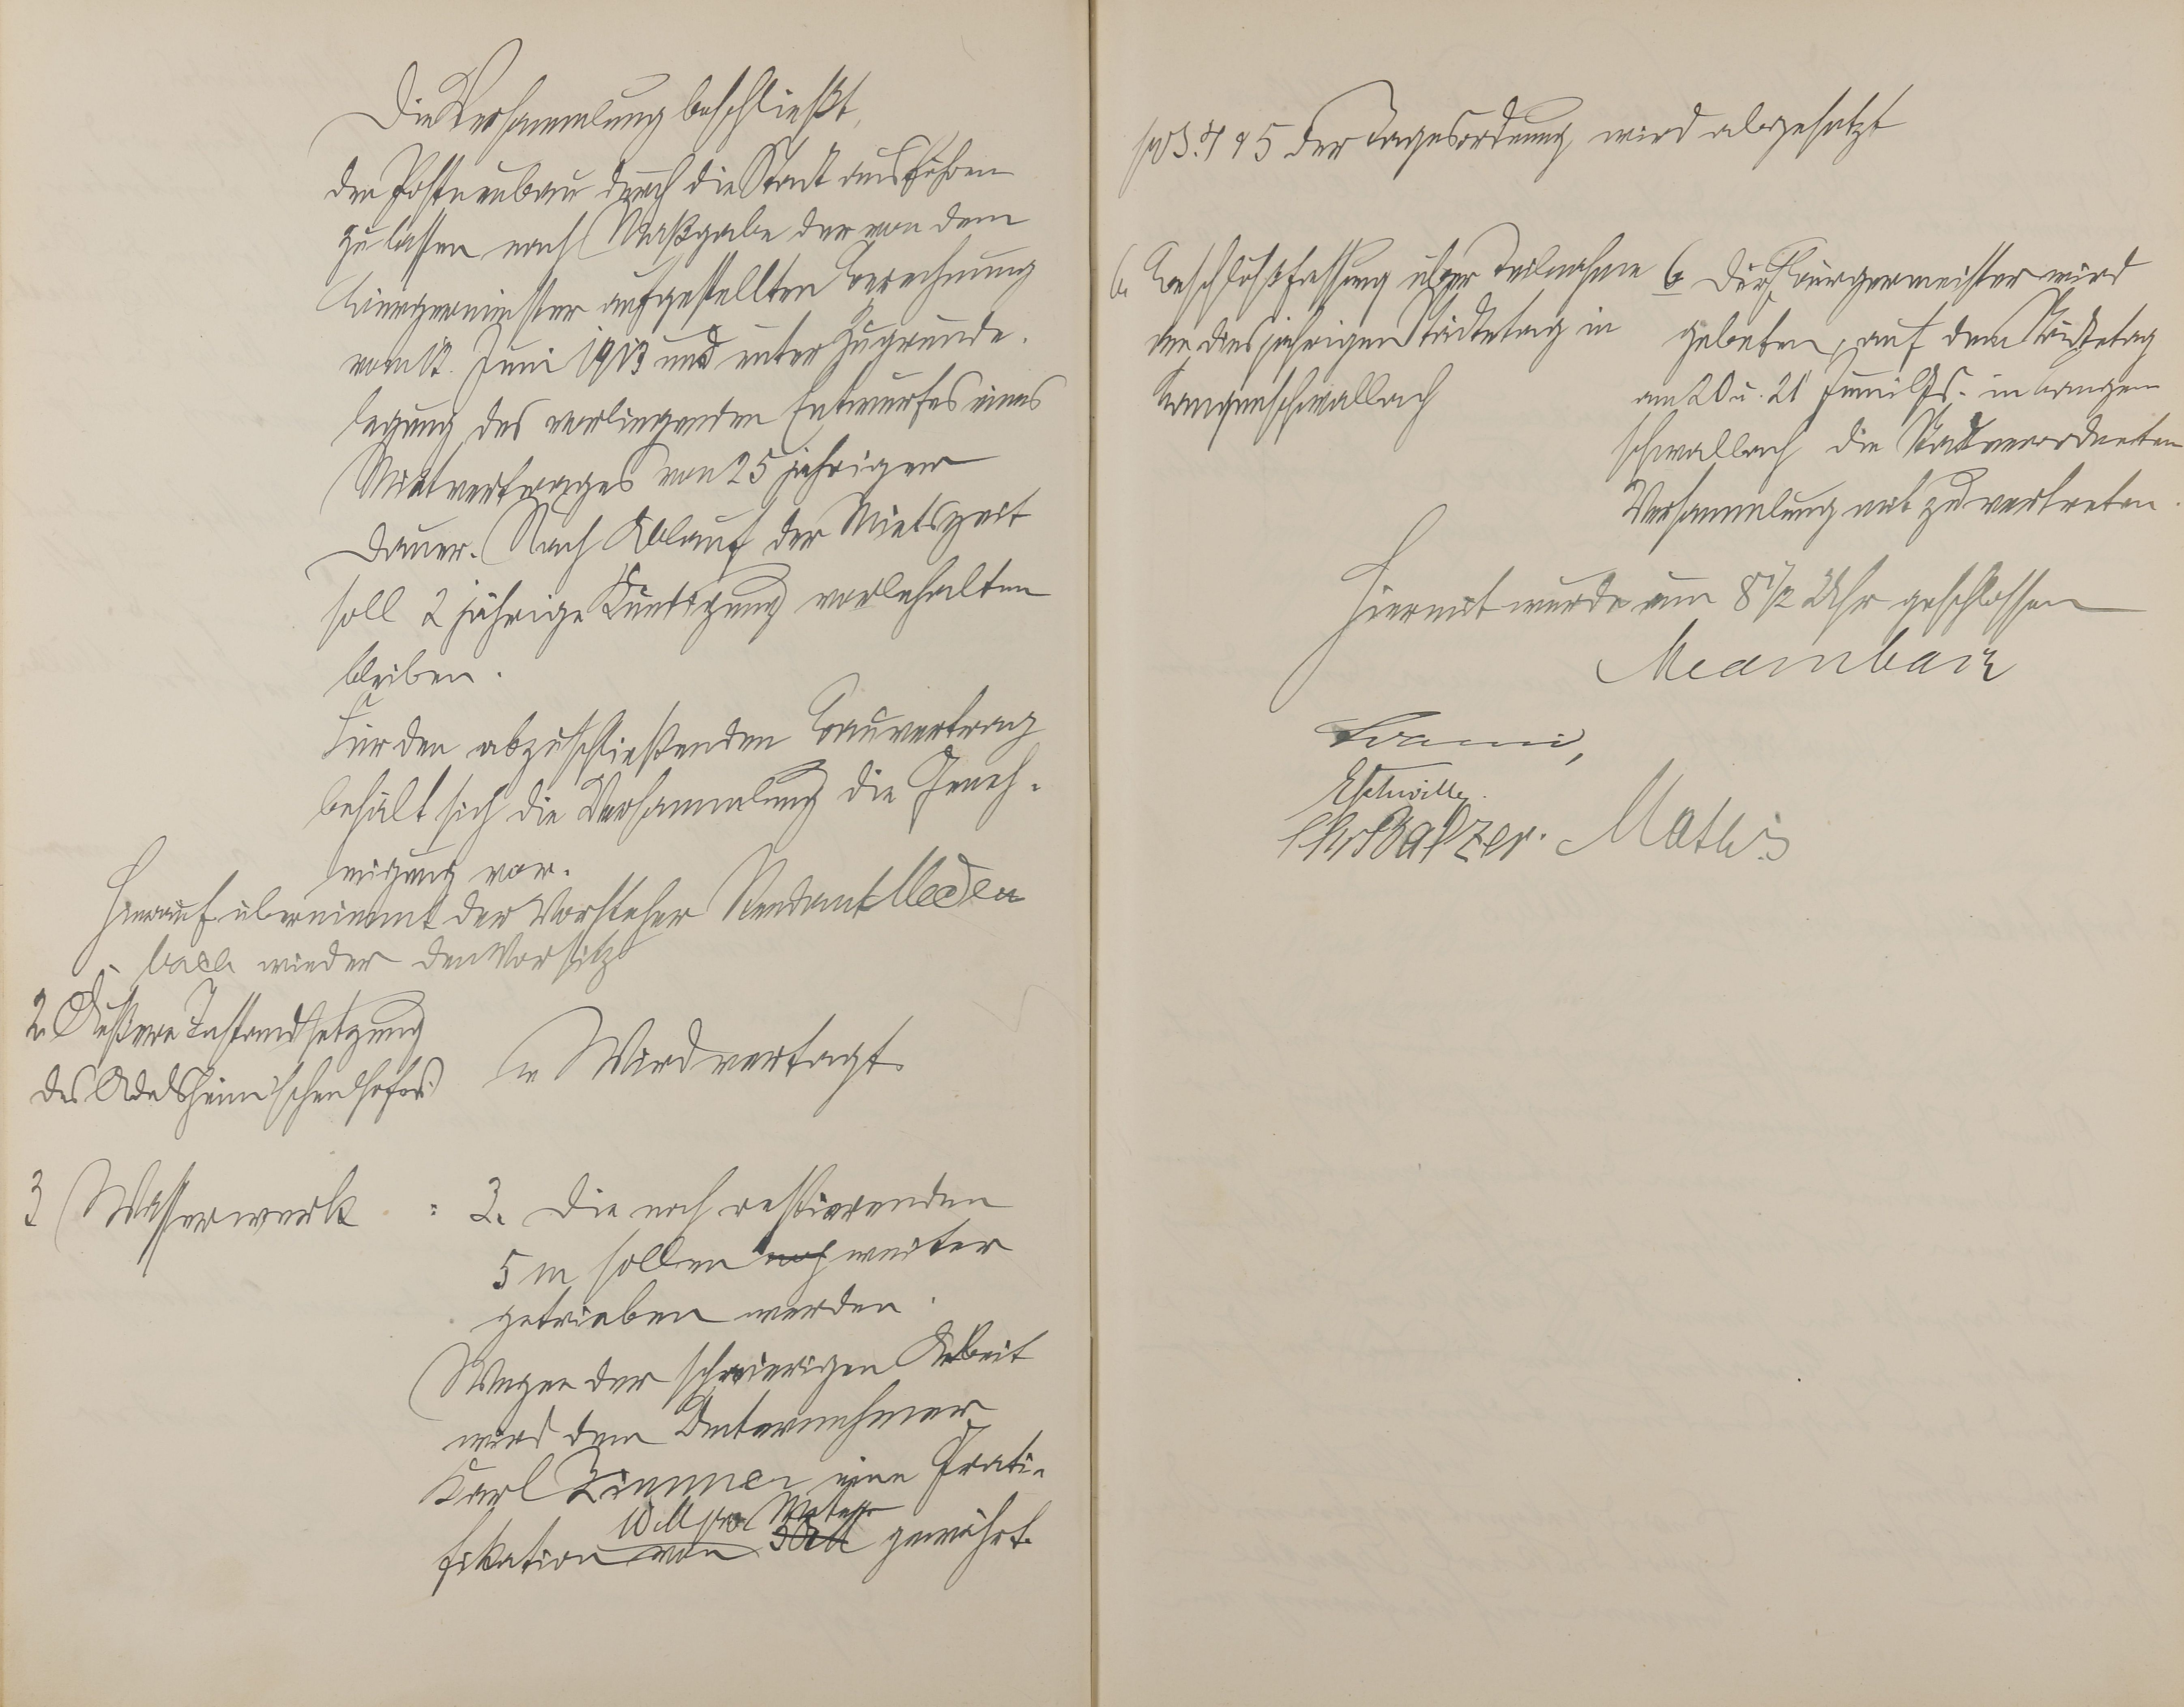 Die Versammlung beschließt,
den Postneubau durch die Stadt ausführen
zu lassen nach Maßgabe der von dem
Bürgermeister aufgestellten Berechnung
vom 12. Juni 1913 und unter Zugrunde-
legung des vorliegenden Entwurfes eines
Mietvertrages von 25 jähriger
Dauer. Nach Ablauf der Mietszeit
soll 2 jährige Kündigung vorbehalten
bleiben.
Für den abzuschließenden Bauvertrag
behält sich die Versammlung die Geneh-
migung vor.
Hierauf übernimmt der Vorsteher Rendant Meden
bach wieder den Vorsitz
2. Äußere Instandsetzung
des Adelsheim'schen Hofes
2. Wird vertagt.
3 Wasserwerk : 3. Die noch restierenden
5 m sollen noch weiter
getrieben werden.
Wegen der schwierigen Arbeit
wird dem Unternehmer
Karl Zimmer eine Grati-
10 M pro Meter
fikation von gewährt.
pos. 4 & 5 der Tagesordnung wird abgesetzt
6. Beschlußfassung über Teilnahme
am diesjährigen Städtetag in
Langenschwalbach
6. Der Bürgermeister wird
gebeten, auf dem Städtetag
am 20 u. 21 Juni lfs. in Langen
schwalbach die Stadtverordneten
Versammlung mit zu vertreten.
Hiermit wurde um 8 1/2 Uhr geschlossen
Medenbach
Chr Balzer. Mathi